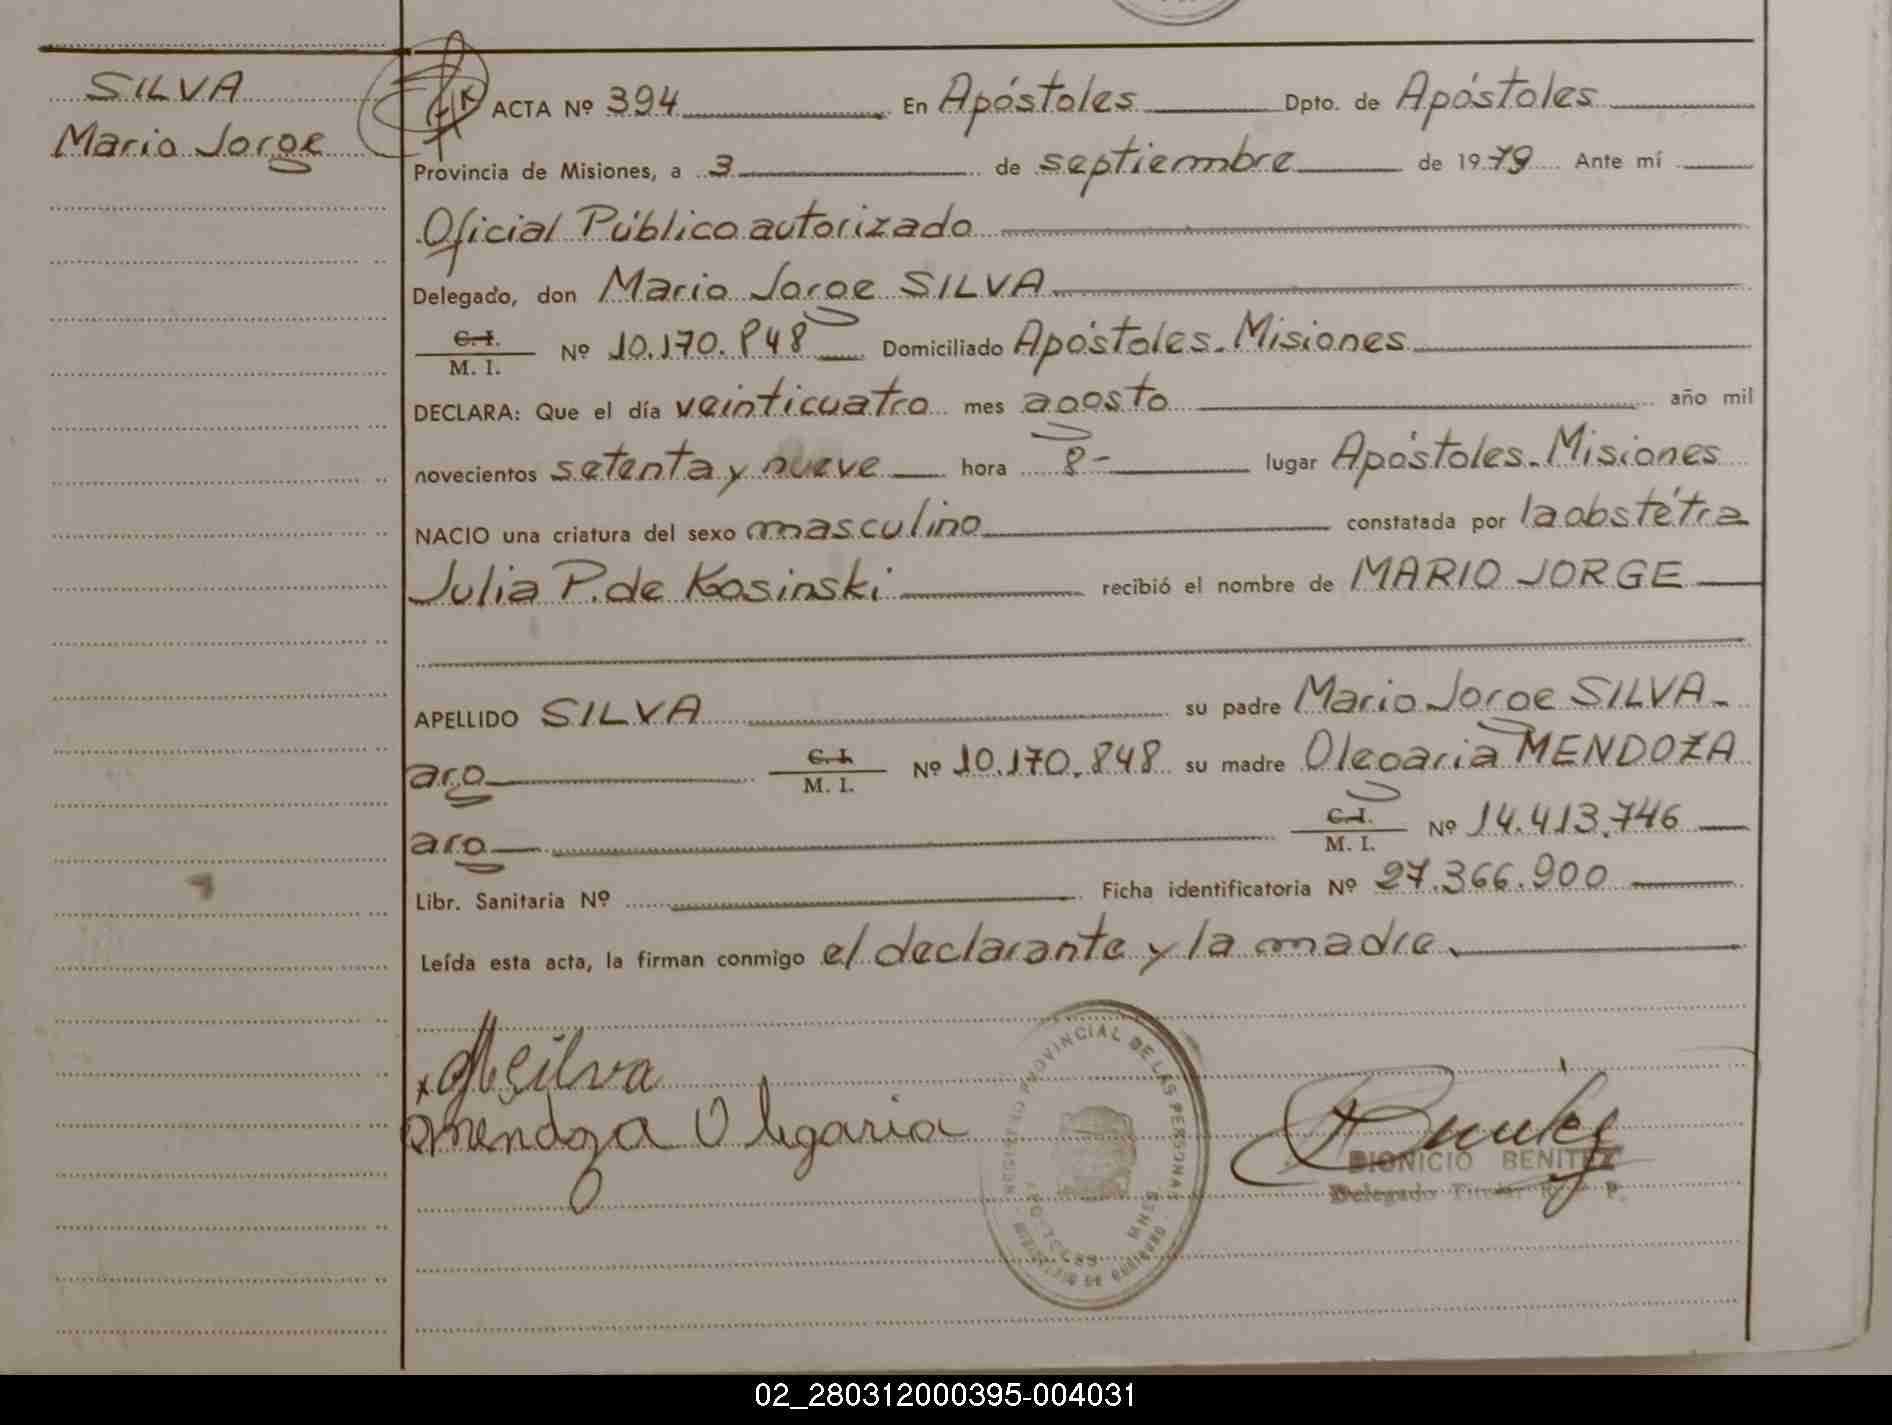 SILVA
Mario Jorge
ACTA Nº 394 En Apóstoles Dpto. de Apóstoles
Provincia de Misiones, a 3 de septiembre de 1979 Ante mí
Oficial Público autorizado
Delegado, don Mario Jorge SILVA
C. I.
M. I. Nº 10.170.848 Domiciliado Apóstoles-Misiones
DECLARA: Que el día veinticuatro mes agosto año mil
novecientos setenta y nueve hora 8- lugar Apóstoles-Misiones
NACIO una criatura del sexo masculino constatada por la obstétra
Julia P. de Kosinski recibió el nombre de MARIO JORGE
APELLIDO SILVA su padre Mario Jorge SILVA-
arg C. I.
M. I. Nº 10.170.848 su madre Olegaria MENDOZA
arg C. I.
M. I. Nº 14.413.746
Libr. Sanitaria Nº Ficha identificatoria Nº 27.366.900
Leída esta acta, la firman conmigo el declarante y la madre.
Silva
Mendoza Olegaria
REGISTRO PROVINCIAL DE LAS PERSONAS
APOSTOLES MNES.
MINISTERIO DE GOBIERNO
DIONICIO BENITEZ
Delegado Titular R. P.
02_280312000395-004031